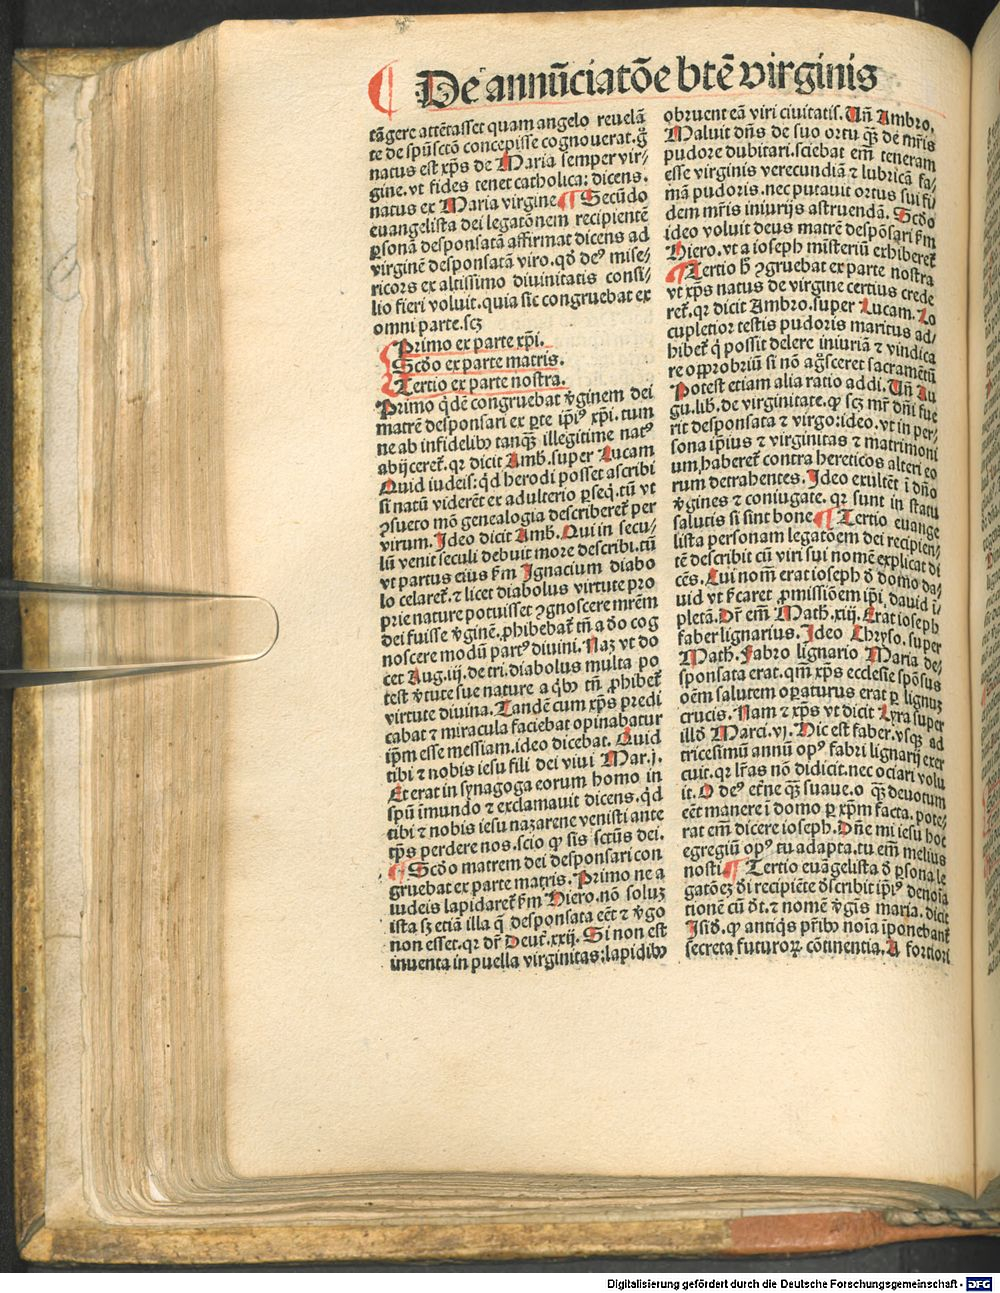 De annūciatōe btē virginis
tāgere attētasset quam angelo revelā
te de spūsctō concepisse cognouerat. g̊
natus est xp̄s de Maria semper vir⸗
gine. vt fides tenet catholica: dicens.
natus ex Maria virgine ¶ Secūdo
euangelista dei legatōnem recipientē
ꝑsonā desponsatā affirmat dicens ad
virginē desponsatā viro. qd̄ deꝰ mise⸗
ricors ex altissimo diuinitatis consi⸗
lio fieri voluit. quia sic congruebat ex
omni parte. scꝫ
Primo ex parte xp̄i.
Scd̄o ex parte matris.
Tertio ex parte nostra.
Primo qͥdē congruebat v̄ginem dei
matrē desponsari ex ꝑte ip̄iꝰ xp̄i. tum
ne ab infidelibꝰ tanqꝫ illegitime natꝰ
abijceret̄. qꝛ dicit Amb. super Lucam
Quid iudeis: qͥd herodi posset ascribi
si natū viderēt ex adulterio ꝑseq̄. tū vt
ꝯsueto mō genealogia describeret̄ per
virum. Ideo dicit Amb. Qui in secu⸗
lū venit seculi debuit more describi. tū
vt partus eius ẜm Ignacium diabo
lo celaret̄. ⁊ licet diabolus virtute pro
prie nature potuisset ꝯgnoscere mr̄em
dei fuisse v̄ginē. ꝓhibebat̄ tn̄ a deo cog
noscere modū partꝰ diuini. Naꝫ vt do
cet Aug. iij. de tri. diabolus multa po
test v̄tute sue nature a qͥbꝰ tn̄ ꝓhibet̄
virtute diuina. Tandē cum xp̄s predi
cabat ⁊ miracula faciebat opinabatur
ip̄m esse messiam. ideo dicebat. Quid
tibi ⁊ nobis iesu fili dei viui Mar. j.
Et erat in synagoga eorum homo in
spū īmundo ⁊ exclamauit dicens. qͥd
tibi ⁊ nobis iesu nazarene venisti ante
tp̄s perdere nos. scio ꝙ sis sctūs dei.
¶ Scd̄o matrem dei desponsari con
gruebat ex parte matris. Primo ne a
iudeis lapidaret̄ ẜm Hiero. nō soluꝫ
ista sꝫ etiā illa q̄ desponsata eēt ⁊ v̄go
non esset. qꝛ dr̄ Deut̄. xxij. Si non est
inuenta in puella virginitas: lapidibꝰ
obruent eā viri ciuitatis. Un̄ Ambro.
Maluit dn̄s de suo ortu qꝫ de mr̄is
pudore dubitari. sciebat em̄ teneram
esse virginis verecundiā ⁊ lubricā fa⸗
mā pudoris. nec putauit ortus sui fi⸗
dem mr̄is iniurijs astruendā. Scd̄o
ideo voluit deus matrē despōsari ẜm
Hiero. vt a ioseph misteriū exhiberet̄
¶ Tertio h̄ ꝯgruebat ex parte nostra
vt xp̄s natus de virgine certius crede
ret̄. qꝛ dicit Ambro. super Lucam. Lo
cupletior testis pudoris maritus ad⸗
hibet̄ q̄ possit delere iniuriā ⁊ vindica
re opprobriū si nō ag̊sceret sacramētū
Potest etiam alia ratio addi. Un̄ Au
gu. lib. de virginitate. ꝙ scꝫ mr̄ dn̄i fue
rit desponsata ⁊ virgo: ideo. vt in per⸗
sona ip̄ius ⁊ virginitas ⁊ matrimoni
um, haberet̄ contra hereticos alteri eo
rum detrahentes. Ideo exultēt ī dn̄o
v̄gines ⁊ coniugate. qꝛ sunt in statu
salutis si sint bone ¶ Tertio euange
lista personam legatōem dei recipien⸗
tē describit cū viri sui nomē explicat di
cēs. Cui nom̄ erat ioseph de domo da⸗
uid vt ẜm caret̄ ꝓmissiōem ip̄i, dauid ī⸗
pletā. Dr̄ em̄ Math̄. xiij. Erat ioseph
faber lignarius. Ideo Chryso. super
Math̄. Fabro lignario Maria de⸗
sponsata erat. qm̄ xp̄s ecclesie spōsus
oēm salutem oꝑaturus erat ꝑ lignuꝫ
crucis. Nam ⁊ xp̄s vt dicit Lyra super
illd̄ Marci. vj. Hic est faber. vsqꝫ ad
tricesimū annū opꝰ fabri lignarij exer
cuit. qꝛ lr̄as nō didicit. nec ociari volu
it. O deꝰ et̄ne qꝫ suaue. o qꝫ deuotum
eēt manere ī domo ꝑ xp̄m facta. pote⸗
rat em̄ dicere ioseph. Dn̄e mi iesu hoc
egregiū opꝰ tu adapta. tu em̄ melius
nosti ¶ Tertio euāgelista de ꝑsona le
gatōeꝫ di recipiēte describit ip̄iꝰ denoīa
tionē cū dt̄. ⁊ nomē v̄gīs maria. dicit
Isid̄. ꝙ antiqͥs pr̄ibꝰ noīa īponebant̄
secreta futuroꝝ cōtinentia. A fortiori
Digitalisierung gefördert durch die Deutsche Forschungsgemeinschaft - DFG